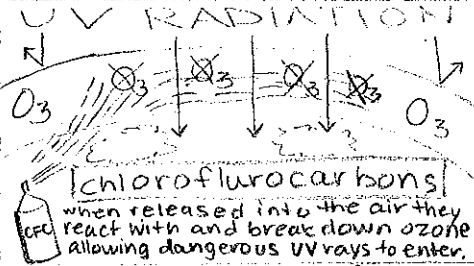 UV RADIATION
O₃ O₃ O₃ O₃ O₃ O₃
chloroflurocarbons
CFC
when released into the air they
react with and break down ozone
allowing dangerous UV rays to enter.